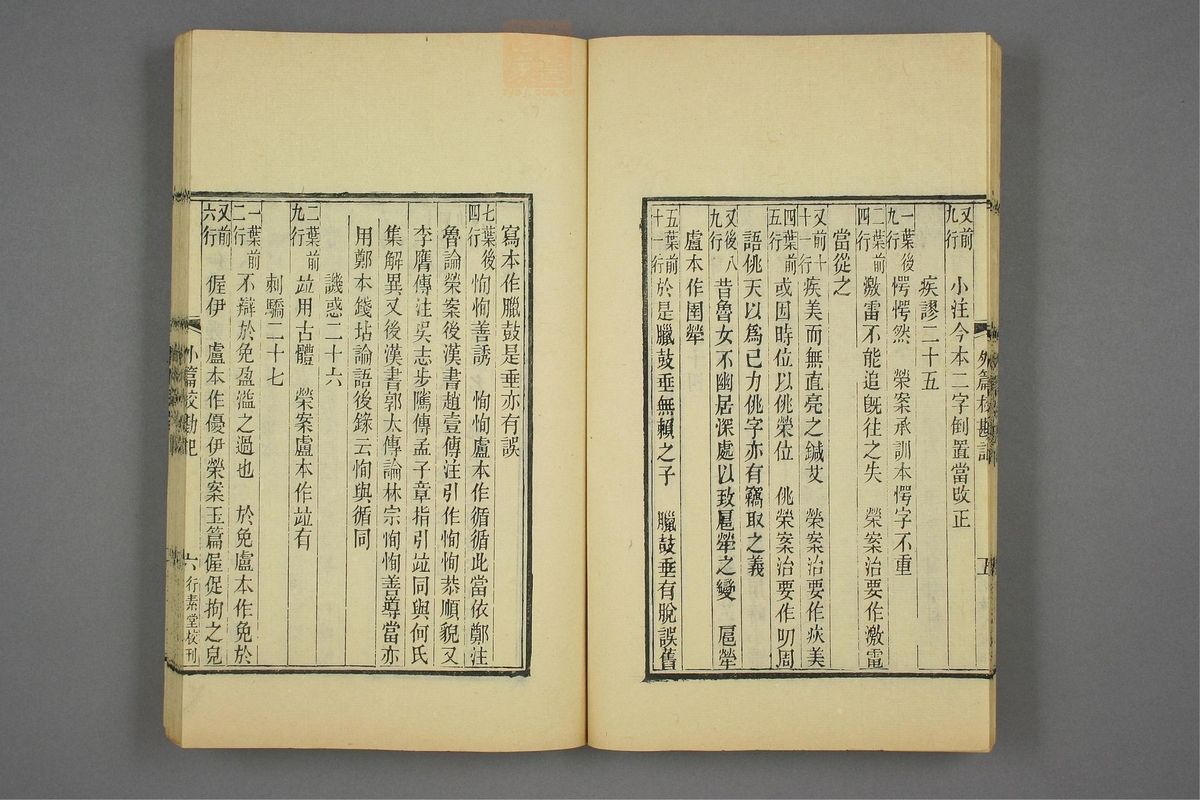 又前九行　小注今本二字倒置當改正
疾謬二十五
一葉後九行　愕愕然　榮案承訓本愕字不重
二葉前四行　激雷不能追旣往之失　榮案治要作激電
當從之
又前十十一行　疾美而無直亮之鍼艾　榮案治要作疢美
四葉前五行　或因時位以佻榮位　佻榮案治要作叨周
語佻天以爲己力佻字亦有竊取之義
又後八九行　昔魯女不幽居深處以致扈犖之變　扈犖
盧本作圉犖
五葉前十一行　於是臘鼓垂無賴之子　臘鼓垂有脫誤舊
外篇校勘記　五
寫本作臘鼓是垂亦有誤
七葉後四行　恂恂善誘　恂恂盧本作循循此當依鄭注
魯論榮案後漢書趙壹傳注引作恂恂恭順貌又
李膺傳注吳志步隲傳孟子章指引竝同與何氏
集解異又後漢書郭太傳論林宗恂恂善導當亦
用鄭本錢坫論語後錄云恂與循同
譏惑二十六
二葉前九行　竝用古體　榮案盧本作竝有
刺驕二十七
一葉前二行　不辯於免盈溢之過也　於免盧本作免於
又前六行　偓伊　盧本作優伊榮案玉篇偓促拘之皃
外篇校勘記　六　行素堂校刊